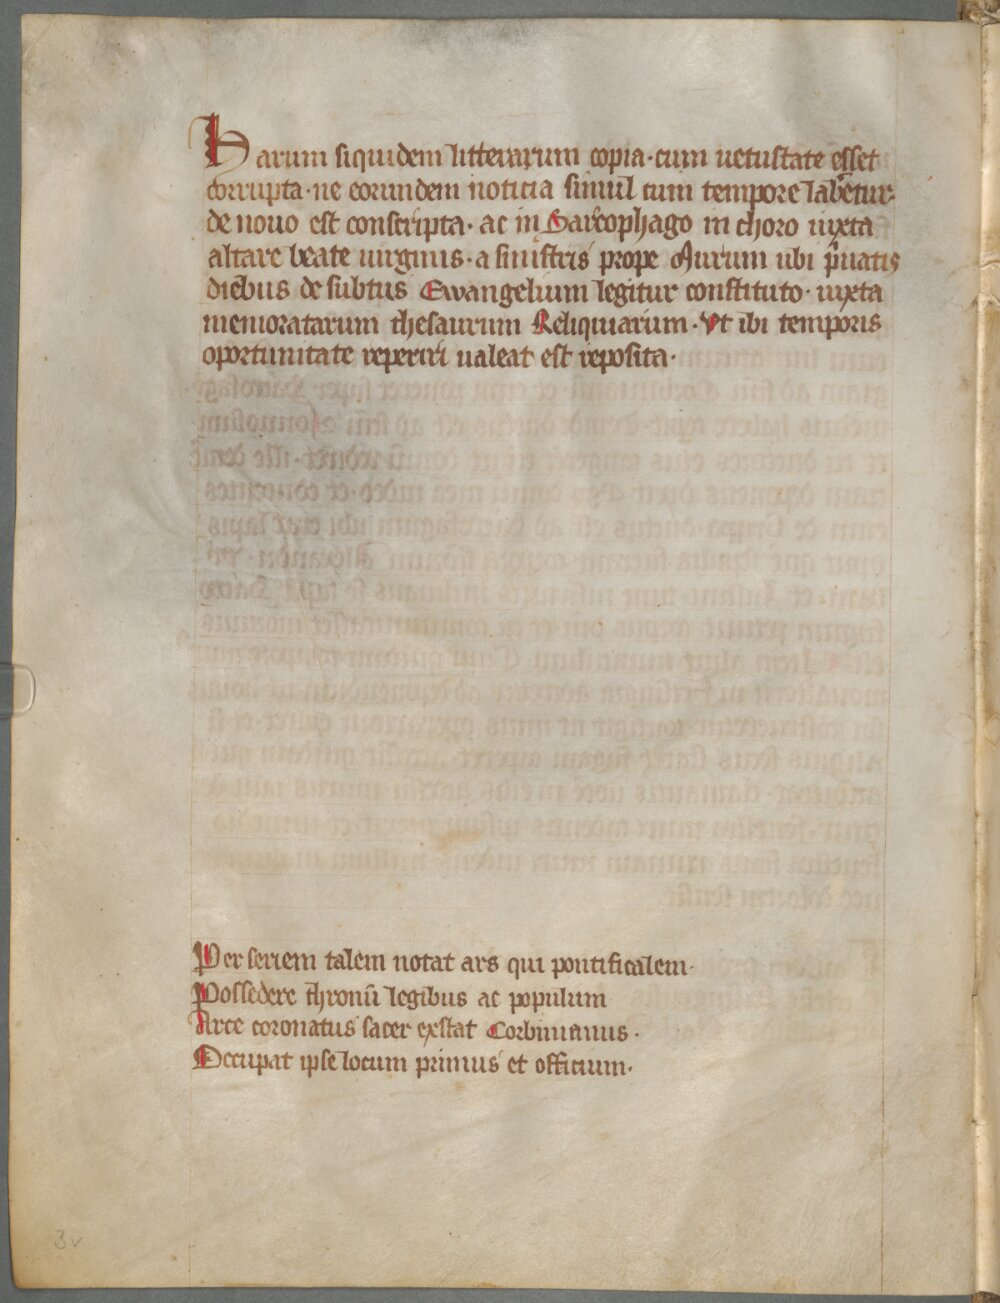 Harum siquidem litterarum copia · cum uetustate esset
corrupta · ne eorundem noticia simul cum tempore laberetur ·
de nouo est conscripta · ac in Sarcophago in choro iuxta
altare beate uirginis · a sinistris prope Murum ubi priuatis
diebus de subtus Ewangelium legitur constituto · iuxta
memoratarum thesaurum Reliquiarum · Vt ibi temporis
oportunitate reperiri ualeat est reposita ·
Per seriem talem notat ars qui pontificalem ·
Possedere thronū legibus ac populum
Arce coronatus sacer exstat Corbinianus ·
Occupat ipse locum primus et officium ·
3v